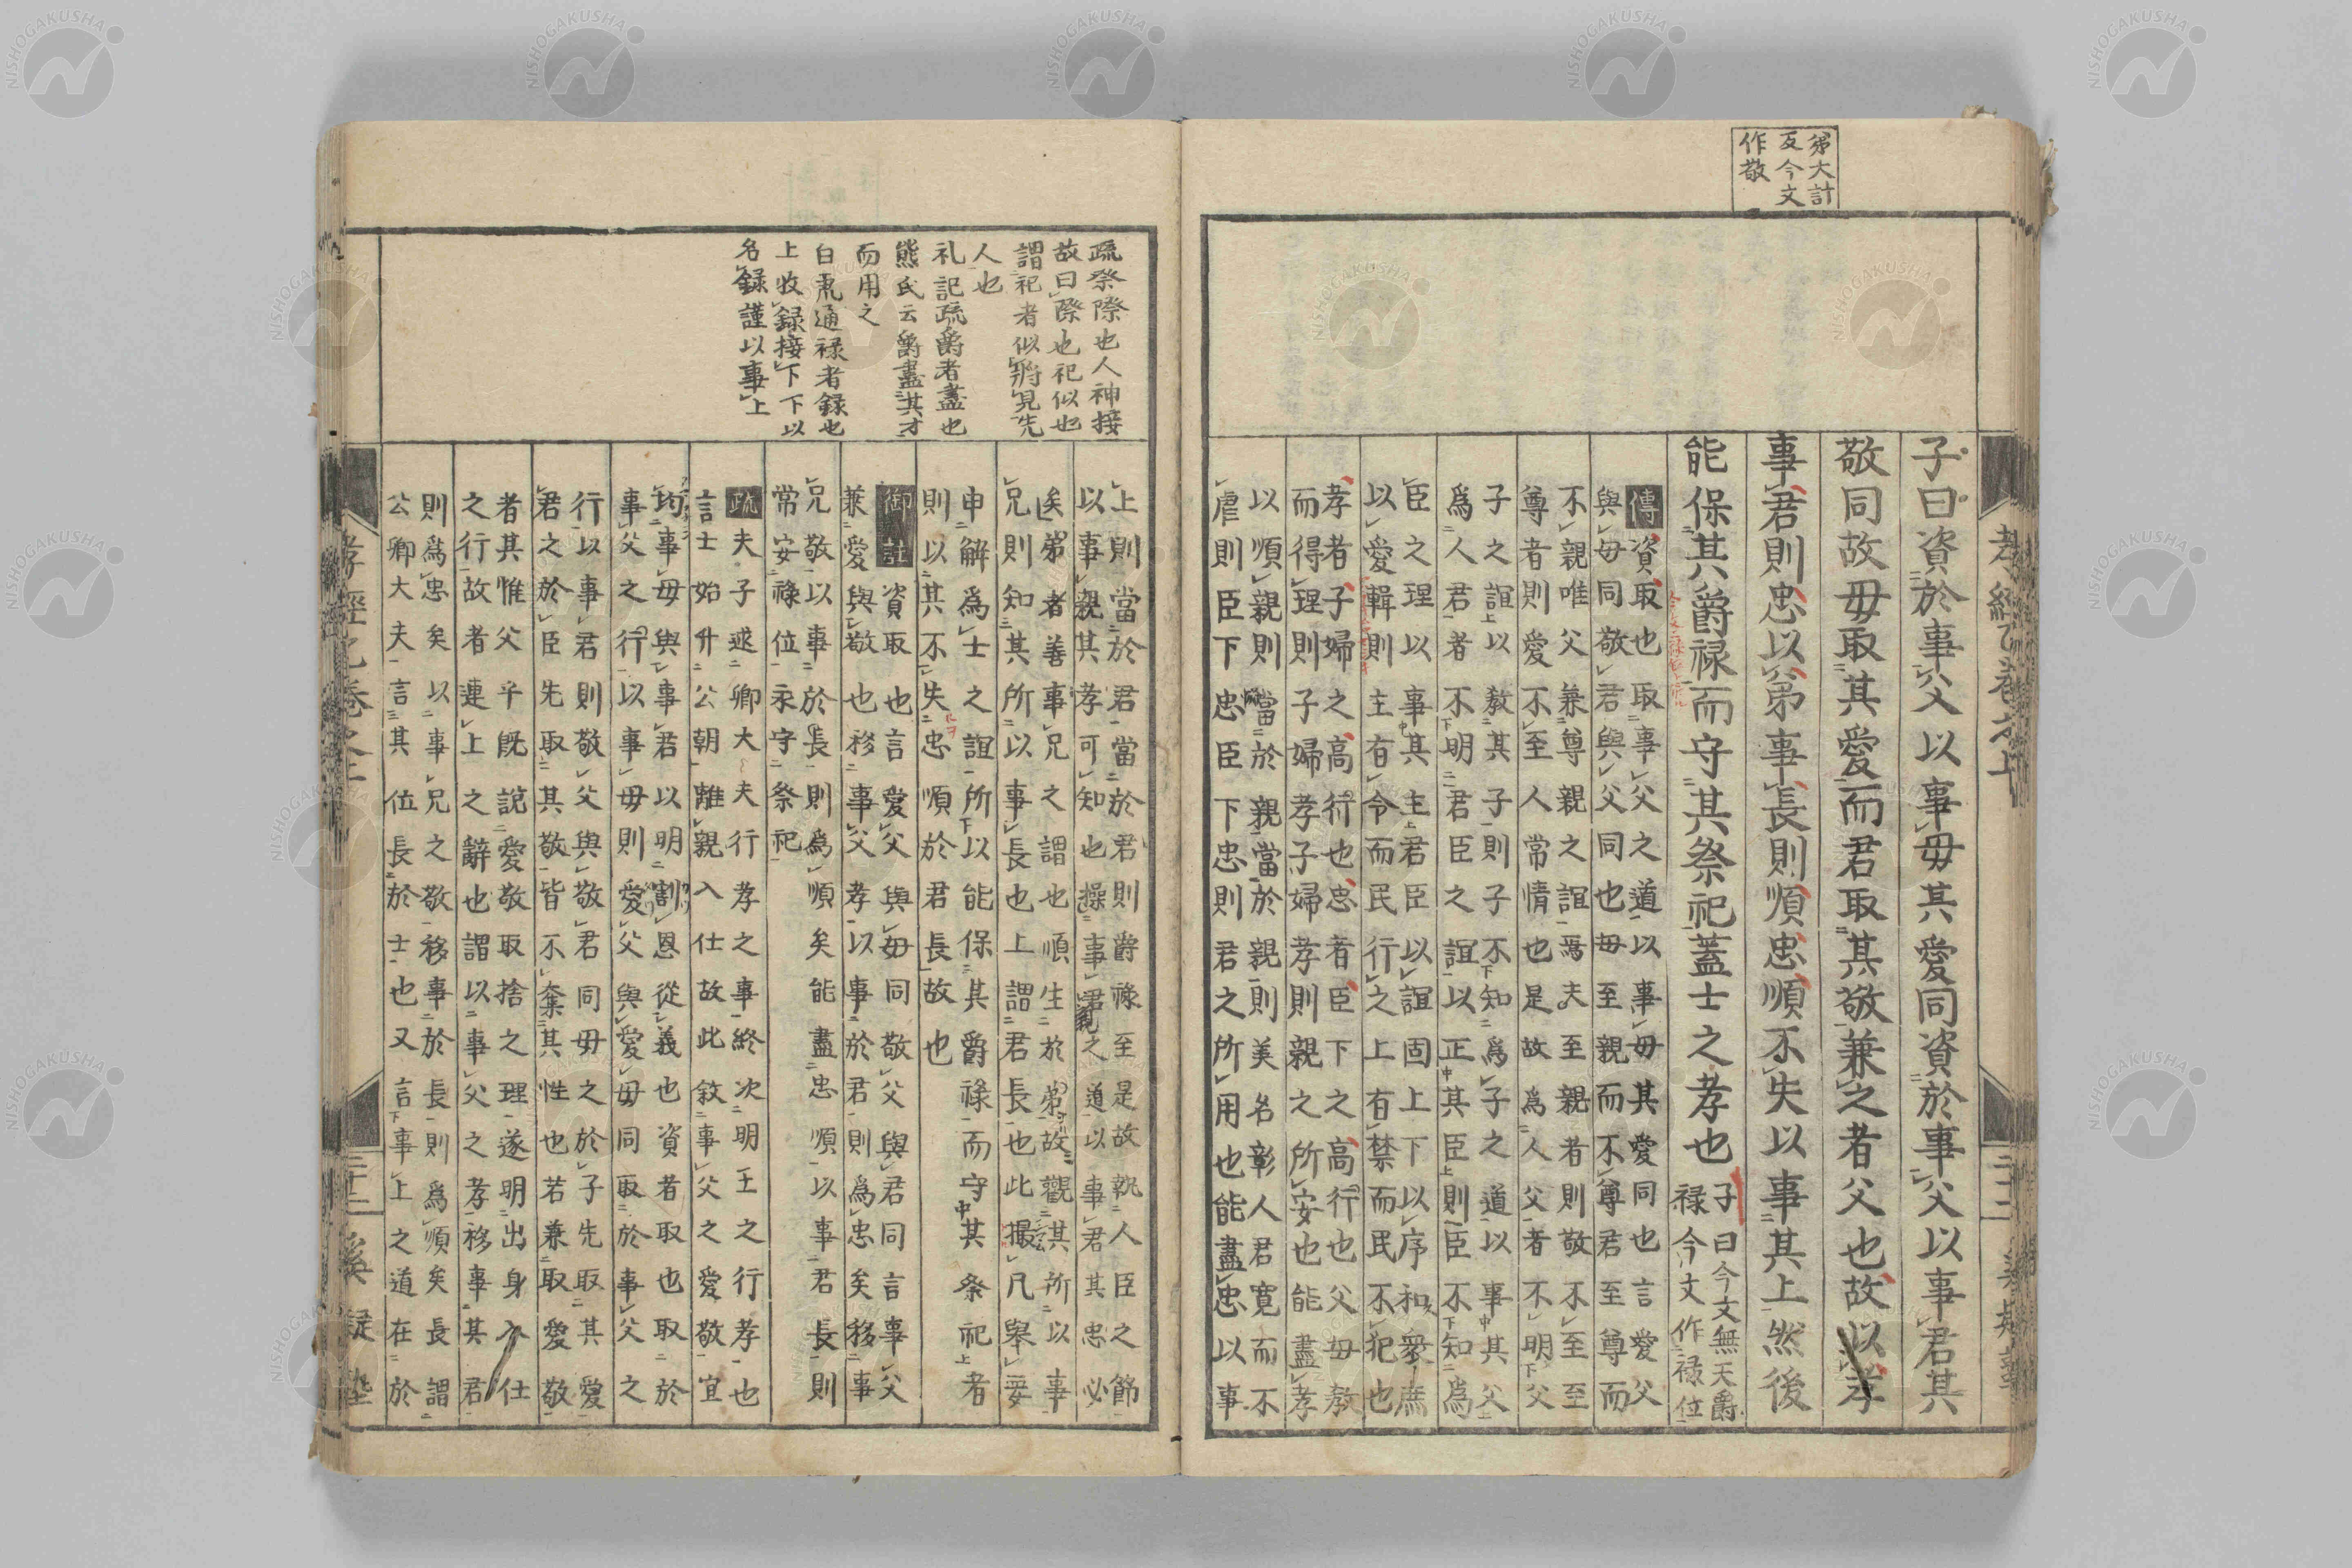 弟大計
反今文
作敬
子曰資於事父以事母其愛同資於事父以事君其
敬同故毋取其愛而君取其敬兼之者父也故以孝
事君則忠以弟事長則順忠順不失以事其上然後
能保其爵禄而守其祭祀蓋士之孝也
子曰今文無天爵
禄今文作禄位
傳資取也取事父之道以事毋其愛同也言愛父
與毋同敬君與父同也毋至親而不尊君至尊而
不親唯父兼尊親之誼焉夫至親者則敬不至至
尊者則愛不至人常情也是故爲人父者不明父
子之誼以教其子則子不知爲子之道以事其父
爲人君者不明君臣之誼以正其臣則臣不知爲
臣之理以事其主君臣以誼固上下以序和衆庶
以愛輯則主有令而民行之上有禁而民不犯也
孝者子婦之高行也忠者臣下之高行也父母教
而得理則子婦孝子婦孝則親之所安也能盡孝
以順親則當於親當於親則美名彰人君寛而不
虐則臣下忠臣下忠則君之所用也能盡忠以事
孝經
疏祭際也人神接
故曰際也祀似也
謂祀者似將見先
人也
礼記疏爵者盡也
熊氏云爵盡其才
而用之
白乕通禄者録也
上收録接下下以
名録謹以事上
上則當於君當於君則爵禄至是故執人臣之節
以事親其孝可知也操事君之道以事君其忠必
矣弟者善事兄之謂也順生於弟故觀其所以事
兄則知其所以事長也上謂君長也此撮凡舉要
申解爲士之誼所以能保其爵禄而守其祭祀者
則以其不失忠順於君長故也
御註資取也言愛父與毋同敬父與君同言事父
兼愛與敬也移事父孝以事於君則爲忠矣移事
兄敬以事於長則爲順矣能盡忠順以事君長則
常安禄位永守祭祀
疏夫子述卿大夫行孝之事終次明士之行孝也
言士始升公朝離親入仕故此敘事父之愛敬宜
均事毋與事君以明割恩從義也資者取也取於
事父之行以事毋則愛父與愛毋同取於事父之
行以事君則敬父與敬君同毋之於子先取其愛
君之於臣先取其敬皆不奪其性也若兼取愛敬
者其惟父乎既說愛敬取捨之理遂明出身入仕
之行故者連上之辭也謂以事父之孝移事其君
則爲忠矣以事兄之敬移事於長則爲順矣長謂
公卿大夫言其位長於士也又言事上之道在於